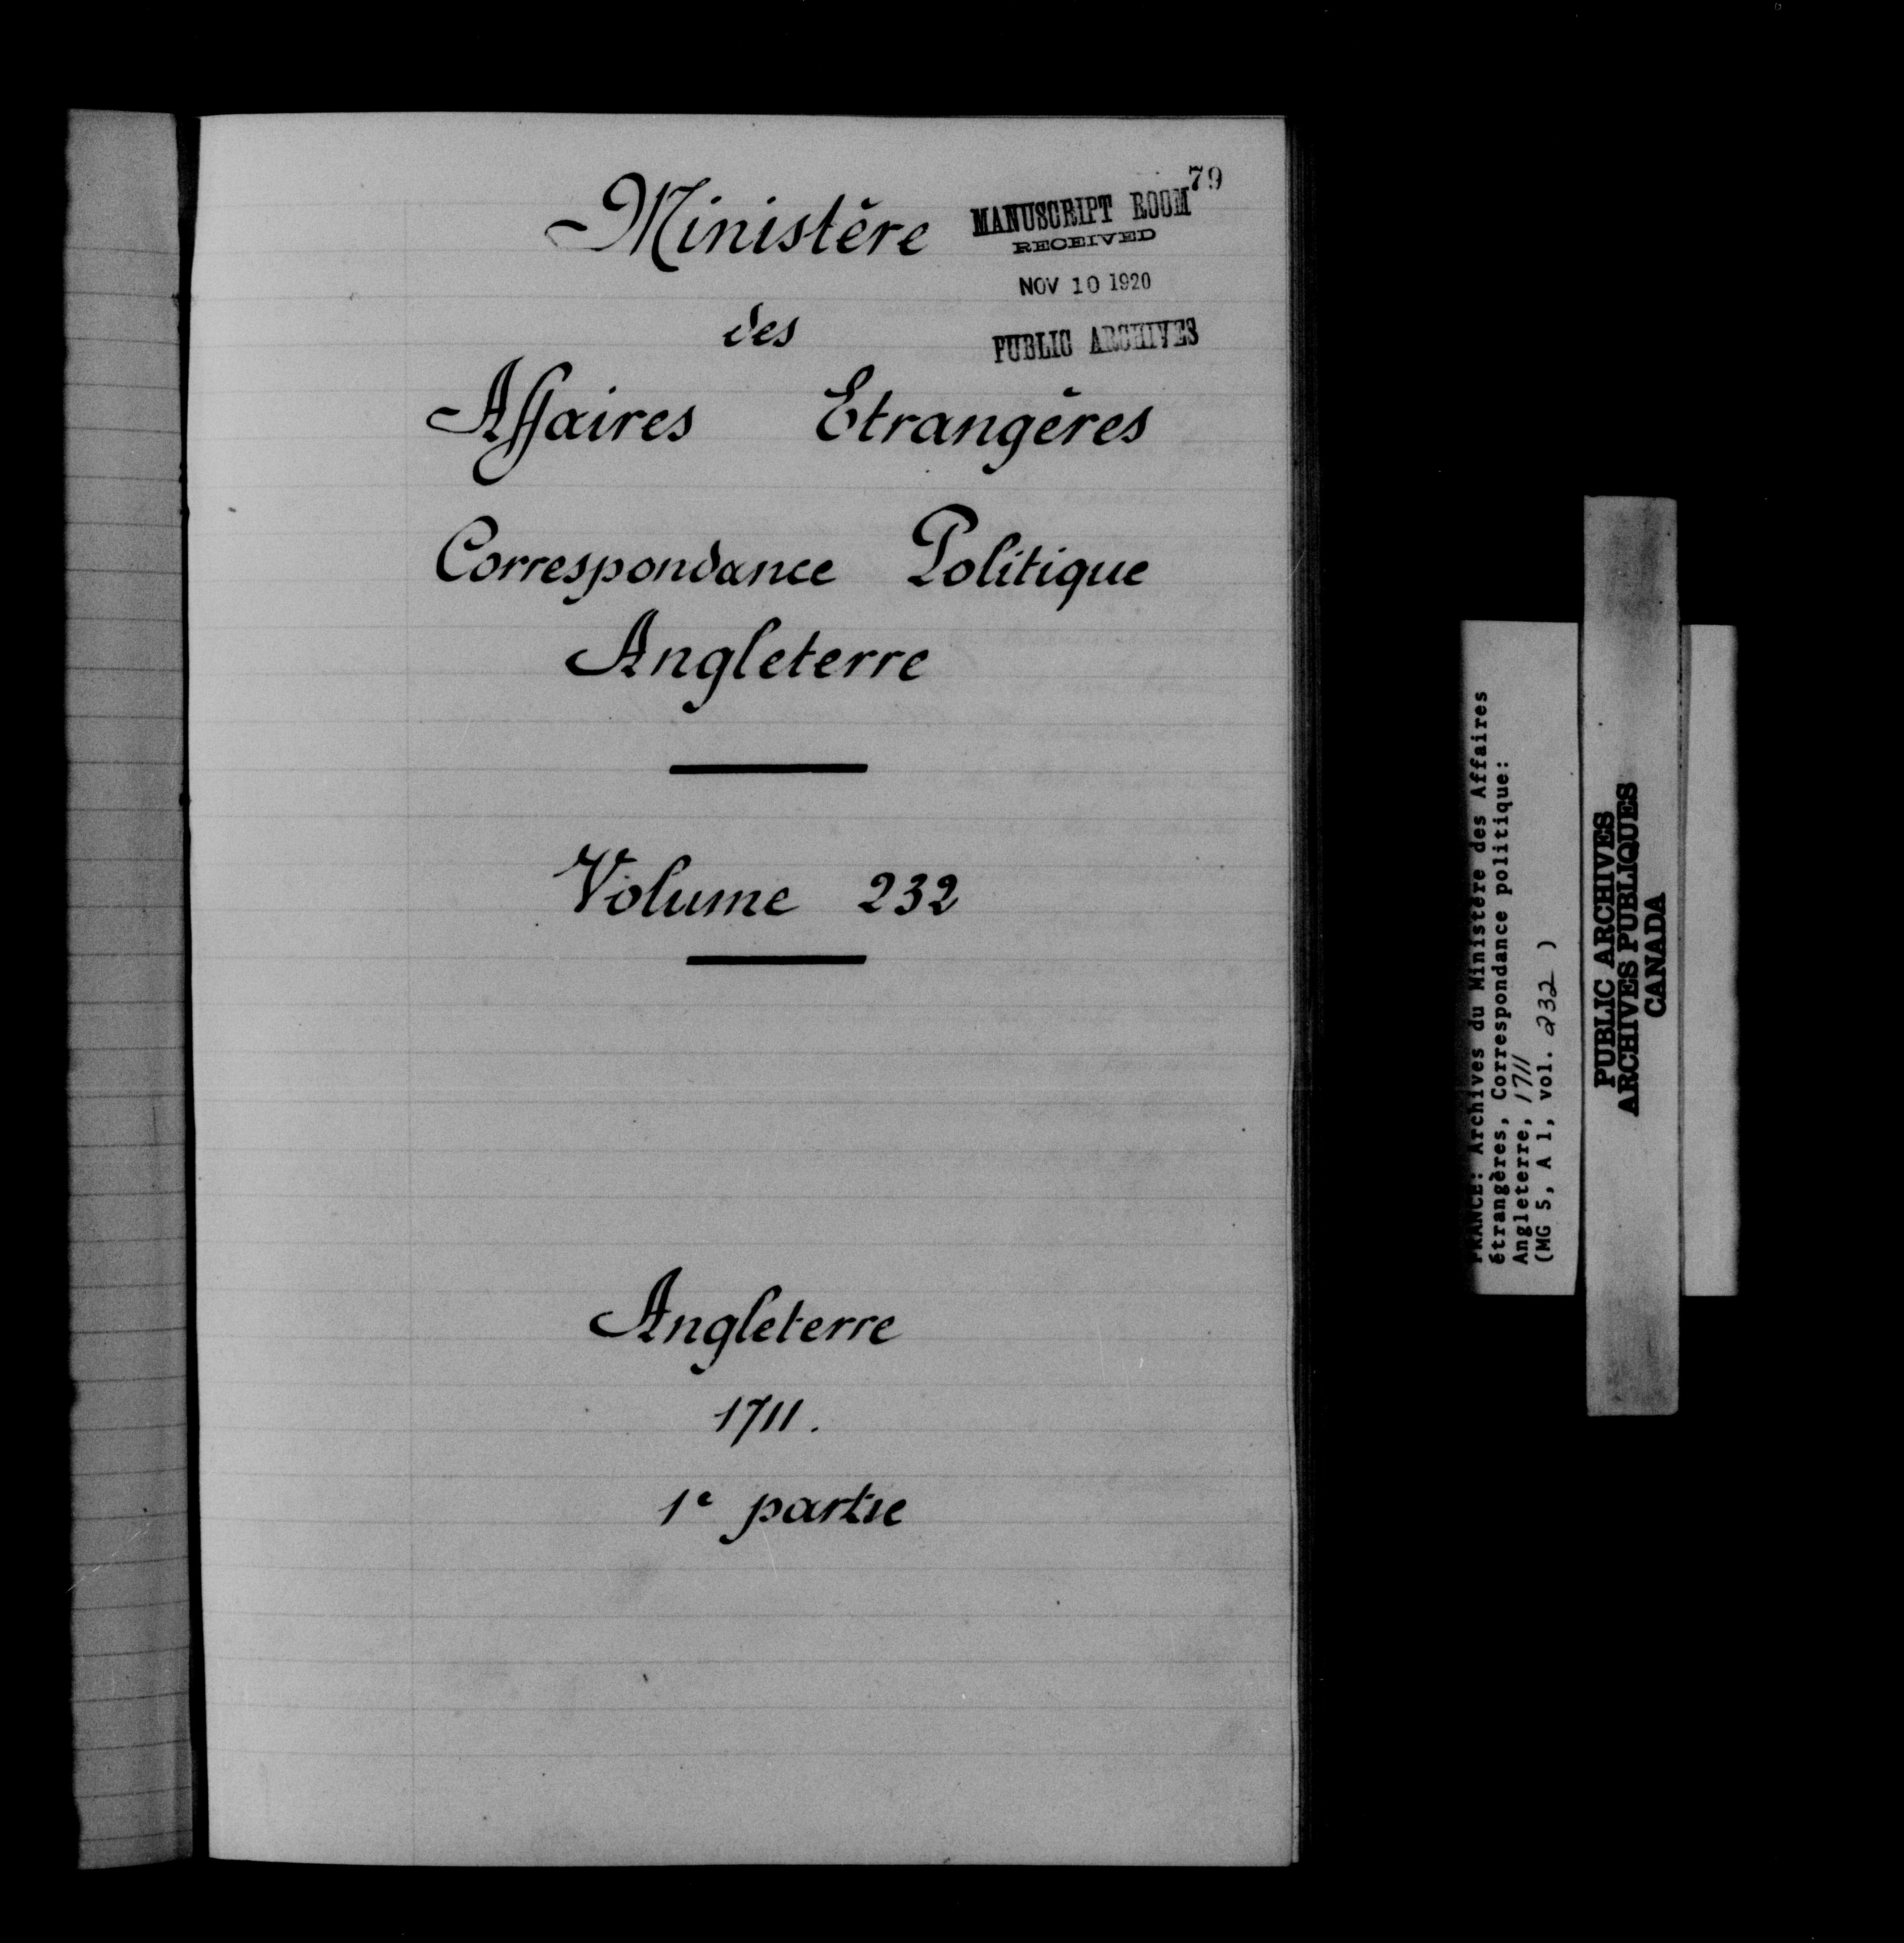 79
Ministère
MANUSCRIPT ROOM
RECEIVED
NOV 10 1920
PUBLIC ARCHIVES
des
Affaires Etrangères
Correspondance Politique
Angleterre
Volume 232
Angleterre
1711.
1e partie
FRANCE: Archives du Ministère des Affaires
étrangères, Correspondance politique:
Angleterre, 1711
(MG 5, A 1, vol. 232 )
PUBLIC ARCHIVES
ARCHIVES PUBLIQUES
CANADA